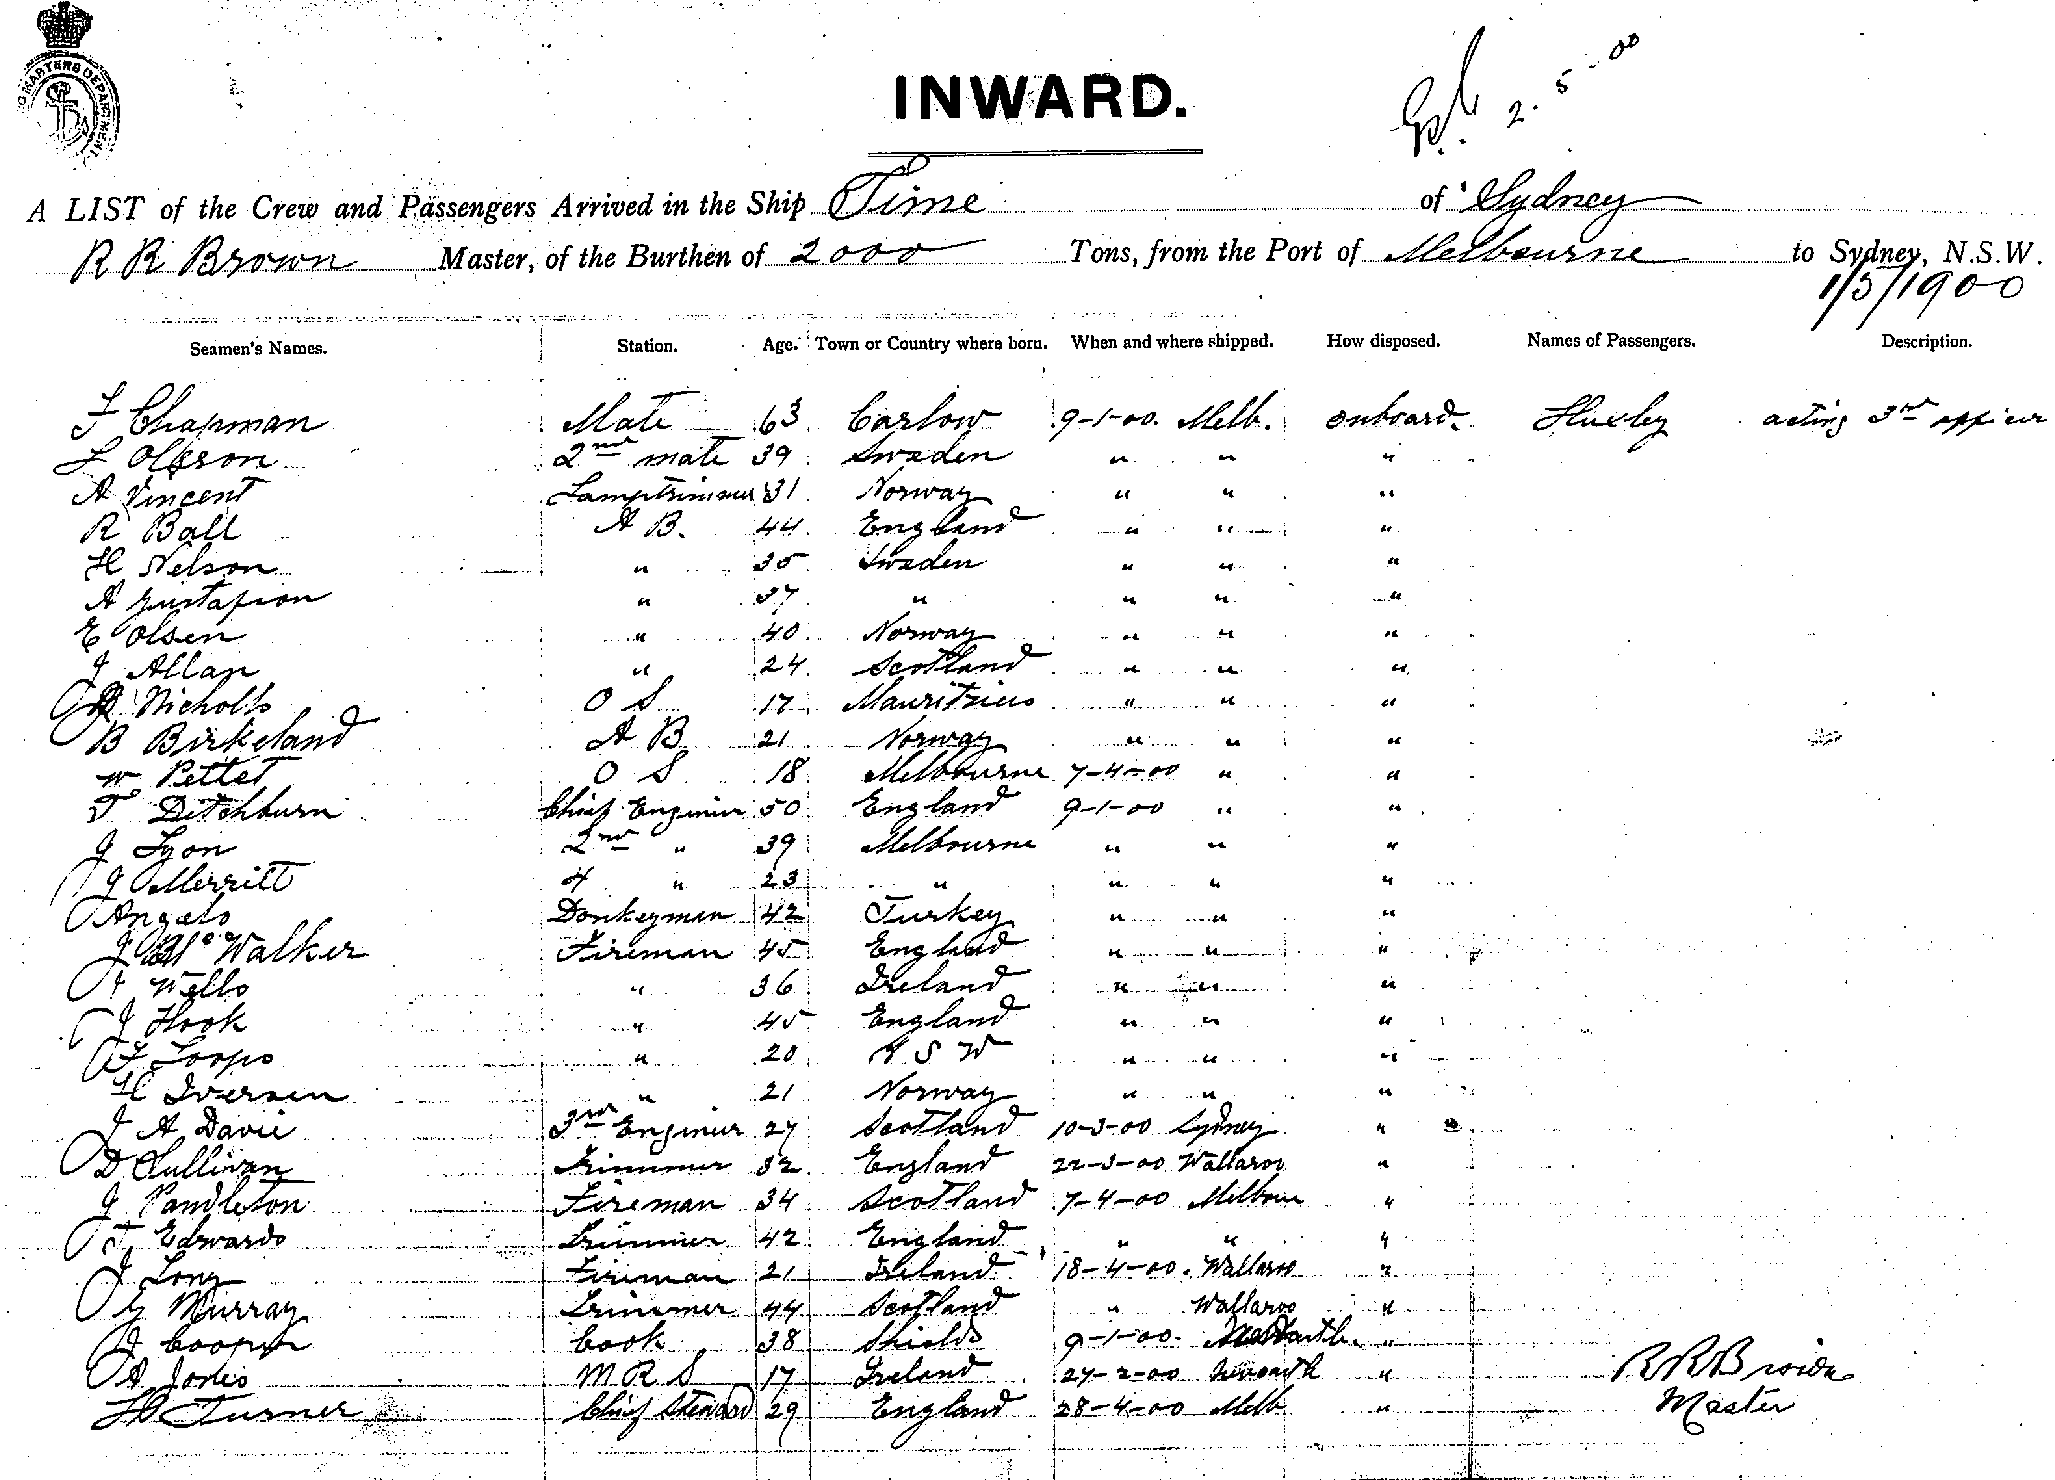 MASTERS DEPARTMENT
INWARD.
2. 5 - 00
A LIST of the Crew and Passengers Arrived in the Ship Time of Sydney
R R Brown Master, of the Burthen of 2000 Tons, from the Port of Melbourne to Sydney, N.S.W.
1/5/1900
Seamen's Names. Station. Age. Town or Country where born. When and where shipped. How disposed. Names of Passengers. Description.
F Chapman Mate 63 Carlow 9-1-00. Melb. onboard. Huxley acting 3rd officer
L Olsson 2nd mate 39 Sweden " " "
A Vincent Lamptrimmer 31 Norway " " "
R Ball A B. 44 England " " "
H Nelson " 35 Sweden " " "
A Gustafson " 37 " " " "
E Olsen " 40 Norway " " "
J Allan " 24 Scotland " " "
Nicholls O S 17 Mauritius " " "
B Birkeland A B 21 Norway " " "
W Pettet O S 18 Melbourne 7-4-00 " "
T Ditchburn Chief Engineer 50 England 9-1-00 " "
J Lyon 2nd " 39 Melbourne " " "
J Merritt 4 " 23 " " " "
Angelo Donkeyman 42 Turkey " " "
J Walker Fireman 45 England " " "
Wells " 36 Ireland " " "
J Hook " 45 England " " "
F Loops " 20 N S W " " "
H Iversen " 21 Norway " " "
J A Davie 3rd Engineer 27 Scotland 10-3-00 Sydney "
D Sullivan Trimmer 32 England 22-3-00 Wallaroo "
J Pandleton Fireman 34 Scotland 7-4-00 Melbour "
T Edwards Trimmer 42 England " " "
J Long Fireman 21 Ireland 18-4-00. Wallaroo "
G Murray Trimmer 44 Scotland " Wallaroo "
J Cooper Cook 38 Shields 9-1-00. "
A Jones M R S 17 Ireland 27-2-00 "
H Turner Chief Steward 29 England 28-4-00 Melb "
R R Brown
Master